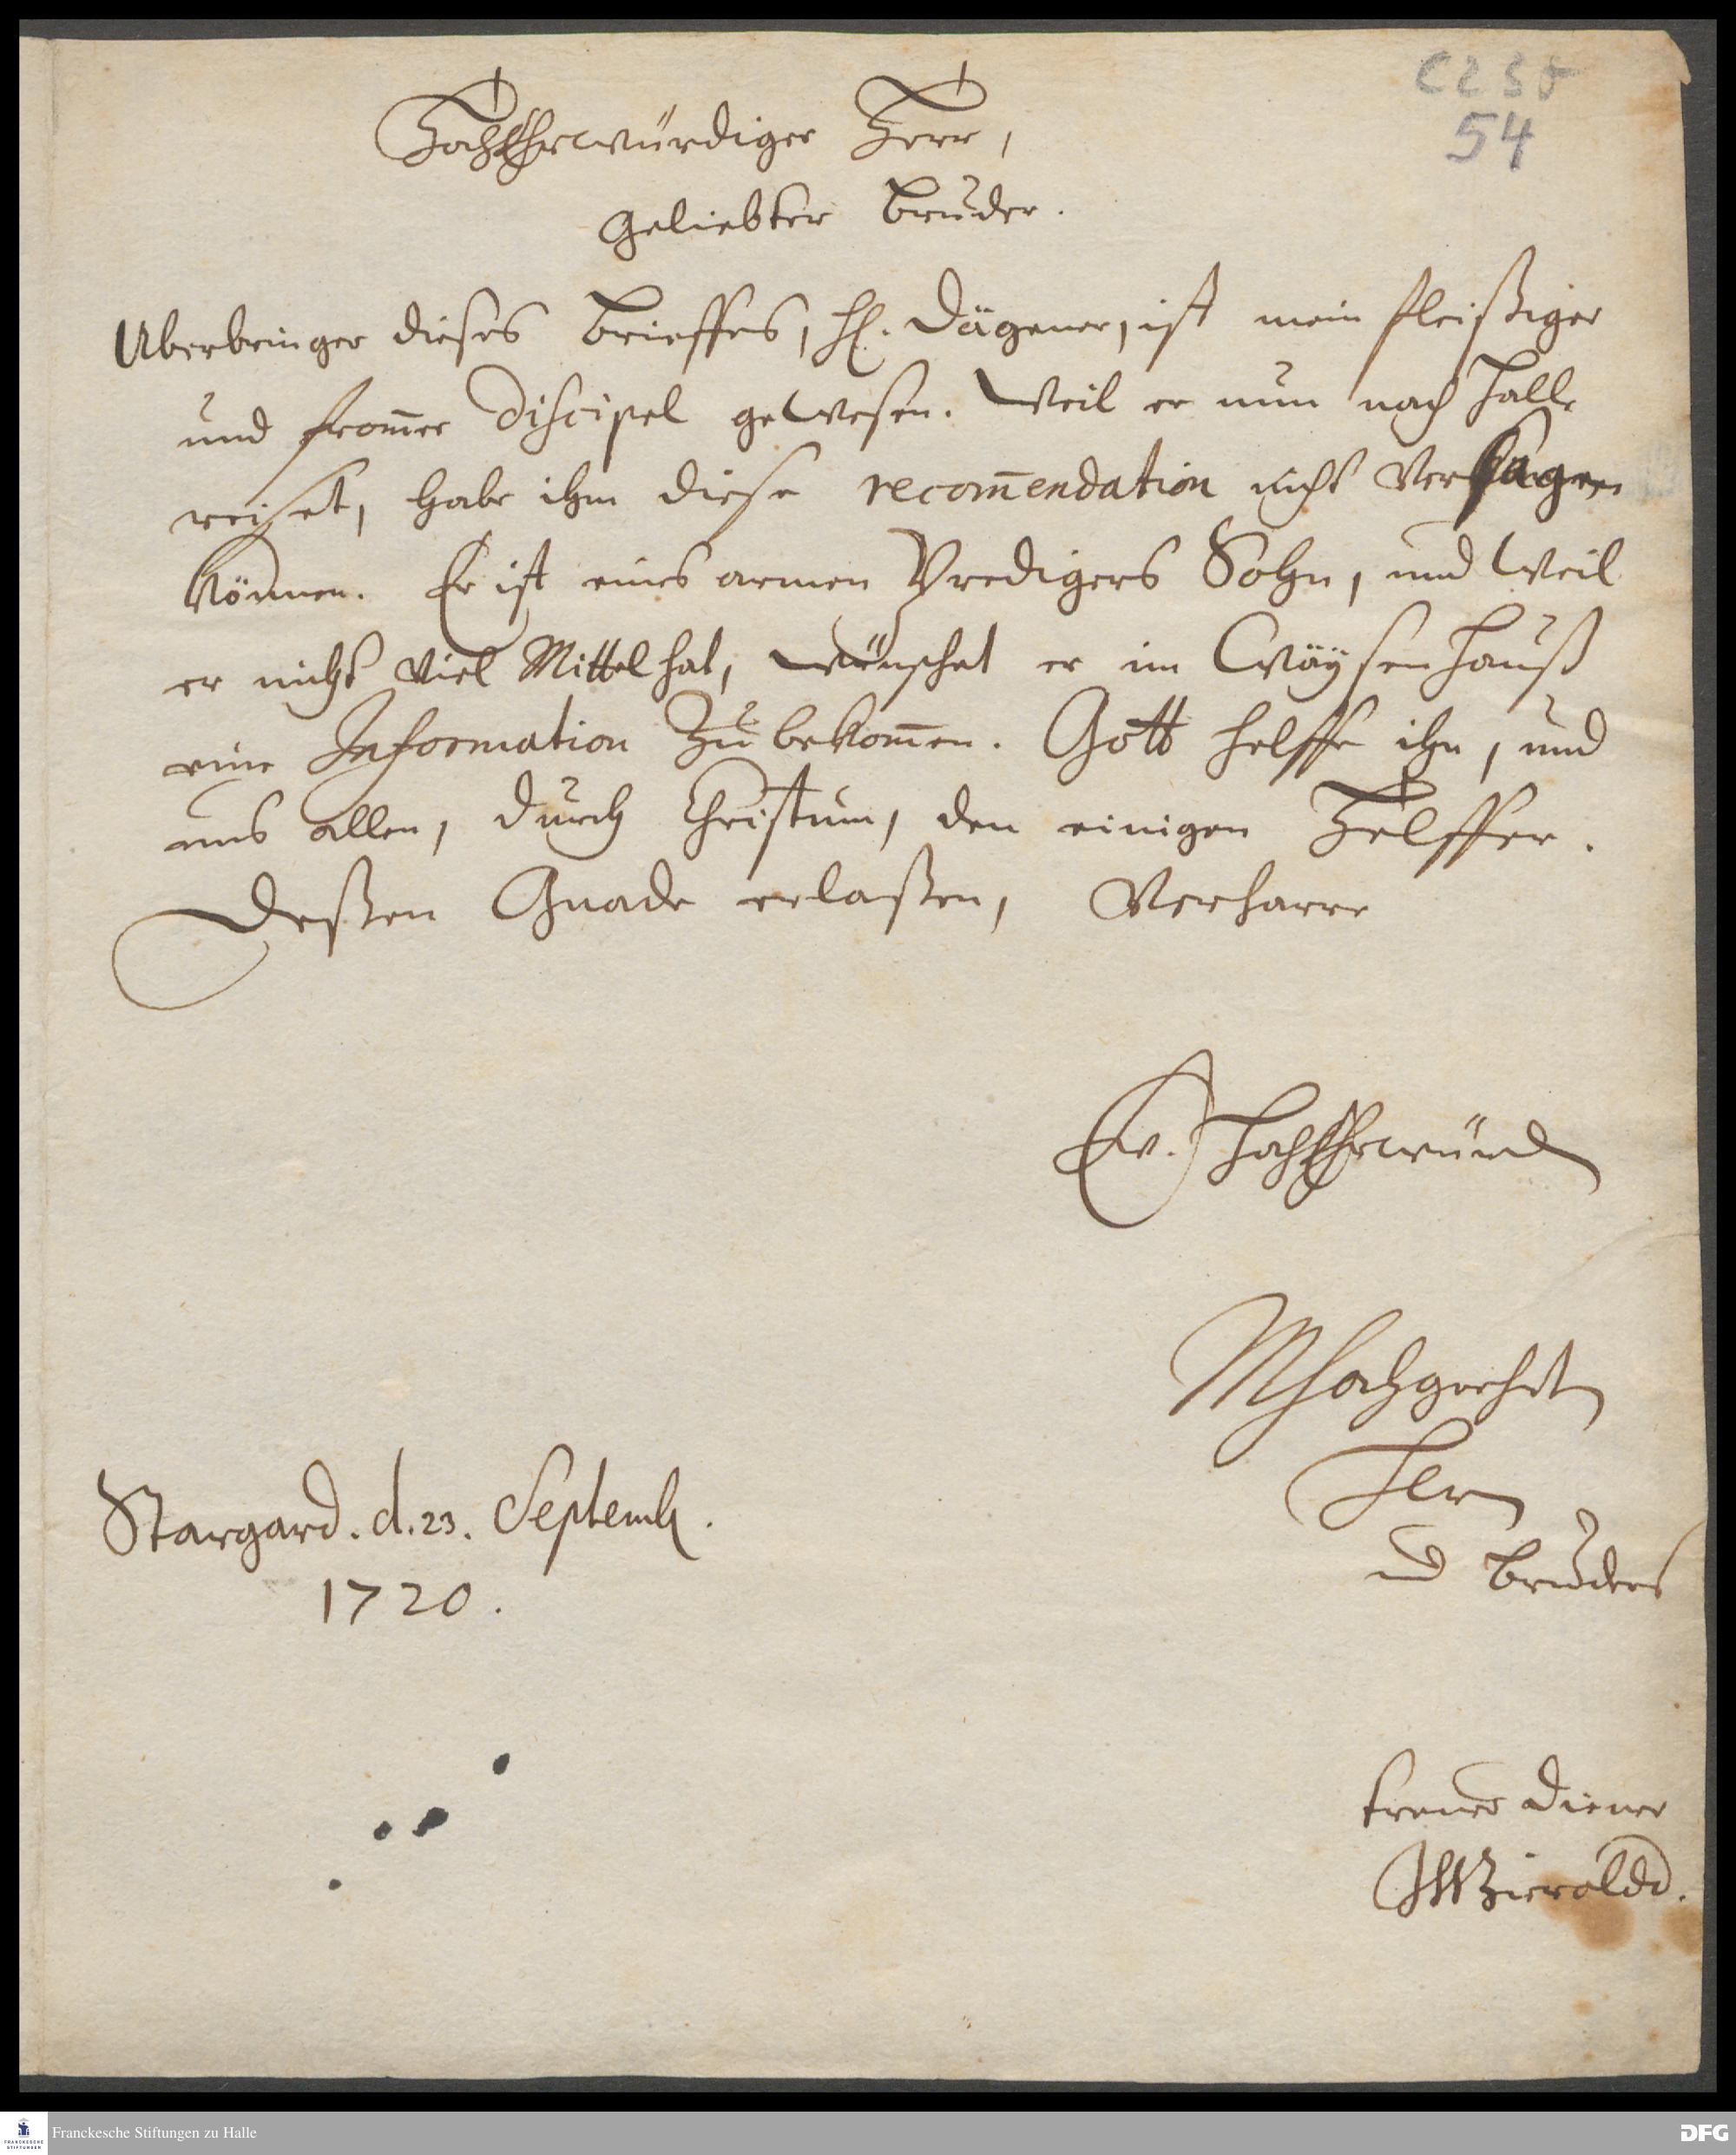 C 230
54
HochEhrwürdiger Herr,
Geliebter Bruder.
Uberbringer dieses Brieffes, H. Dägener, ist mein fleißiger
und from̄er Discipel gewesen. Weil er nun nach Halle
reiset, habe ihm diese recom̄endation nicht versagen
können. Er ist eines armen Predigers Sohn, und weil
er nicht viel Mittel hat, wünschet er im Wäÿsenhauß
eine Information zu bekom̄en. Gott helffe ihn, und
uns allen, durch Christum, den einigen Helffer.
Deßen Gnade erlaßen, verharre
Ew. HochEhrwürd
MHochgeehrt
Herrn
u Bruders
Stargard. d. 23. Septemb.
1720.
treuer Diener
JWZierold.
Franckesche Stiftungen zu Halle
DFG